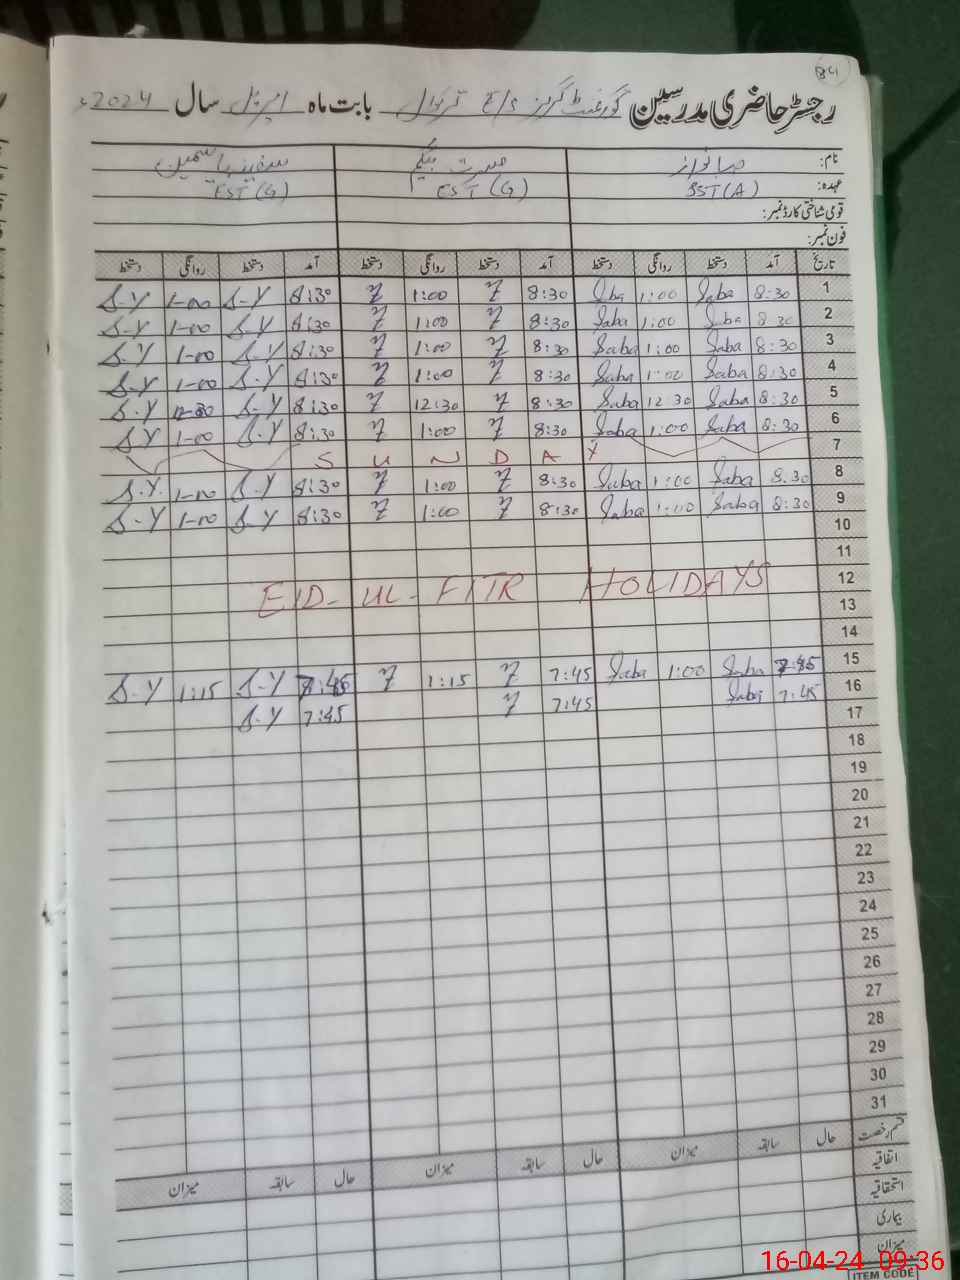 84
رجسٹر حاضری مدرسین گورنمنٹ گرلز بابت ماہ اپریل سال 2024ء
نام: صبا نواز مسرت بیگم سفینہ یاسمین
عہدہ: SST(A) EST(G) EST(G)
قومی شناختی کارڈ نمبر:
فون نمبر:
تاریخ آمد دستخط روانگی دستخط آمد دستخط روانگی دستخط آمد دستخط روانگی دستخط
1 8:30 Saba 1:00 Saba 8:30 1:00 8:30 S.Y 1-00 S.Y
2 8:30 Saba 1:00 Saba 8:30 1:00 8:30 S.Y 1-00 S.Y
3 8:30 Saba 1:00 Saba 8:30 1:00 8:30 S.Y 1-00 S.Y
4 8:30 Saba 1:00 Saba 8:30 1:00 8:30 S.Y 1-00 S.Y
5 8:30 Saba 12:30 Saba 8:30 12:30 8:30 S.Y 12-30 S.Y
6 8:30 Saba 1:00 Saba 8:30 1:00 8:30 S.Y 1-00 S.Y
7 SUNDAY
8 8:30 Saba 1:00 Saba 8:30 1:00 8:30 S.Y 1-00 S.Y.
9 8:30 Saba 1:00 Saba 8:30 1:00 8:30 S.Y 1-00 S.Y
10
11
12 EID-UL-FITR HOLIDAYS
13
14
15 7:45 Saba 1:00 Saba 7:45 1:15 7:45 S.Y 1:15 S.Y
16 7:45 Saba 7:45 7:45 S.Y
17
18
19
20
21
22
23
24
25
26
27
28
29
30
31
قسم رخصت حال سابقہ میزان حال سابقہ میزان حال سابقہ میزان
اتفاقیہ
استحقاقیہ
بیماری
میزان
ITEM CODE
16-04-24 09:36